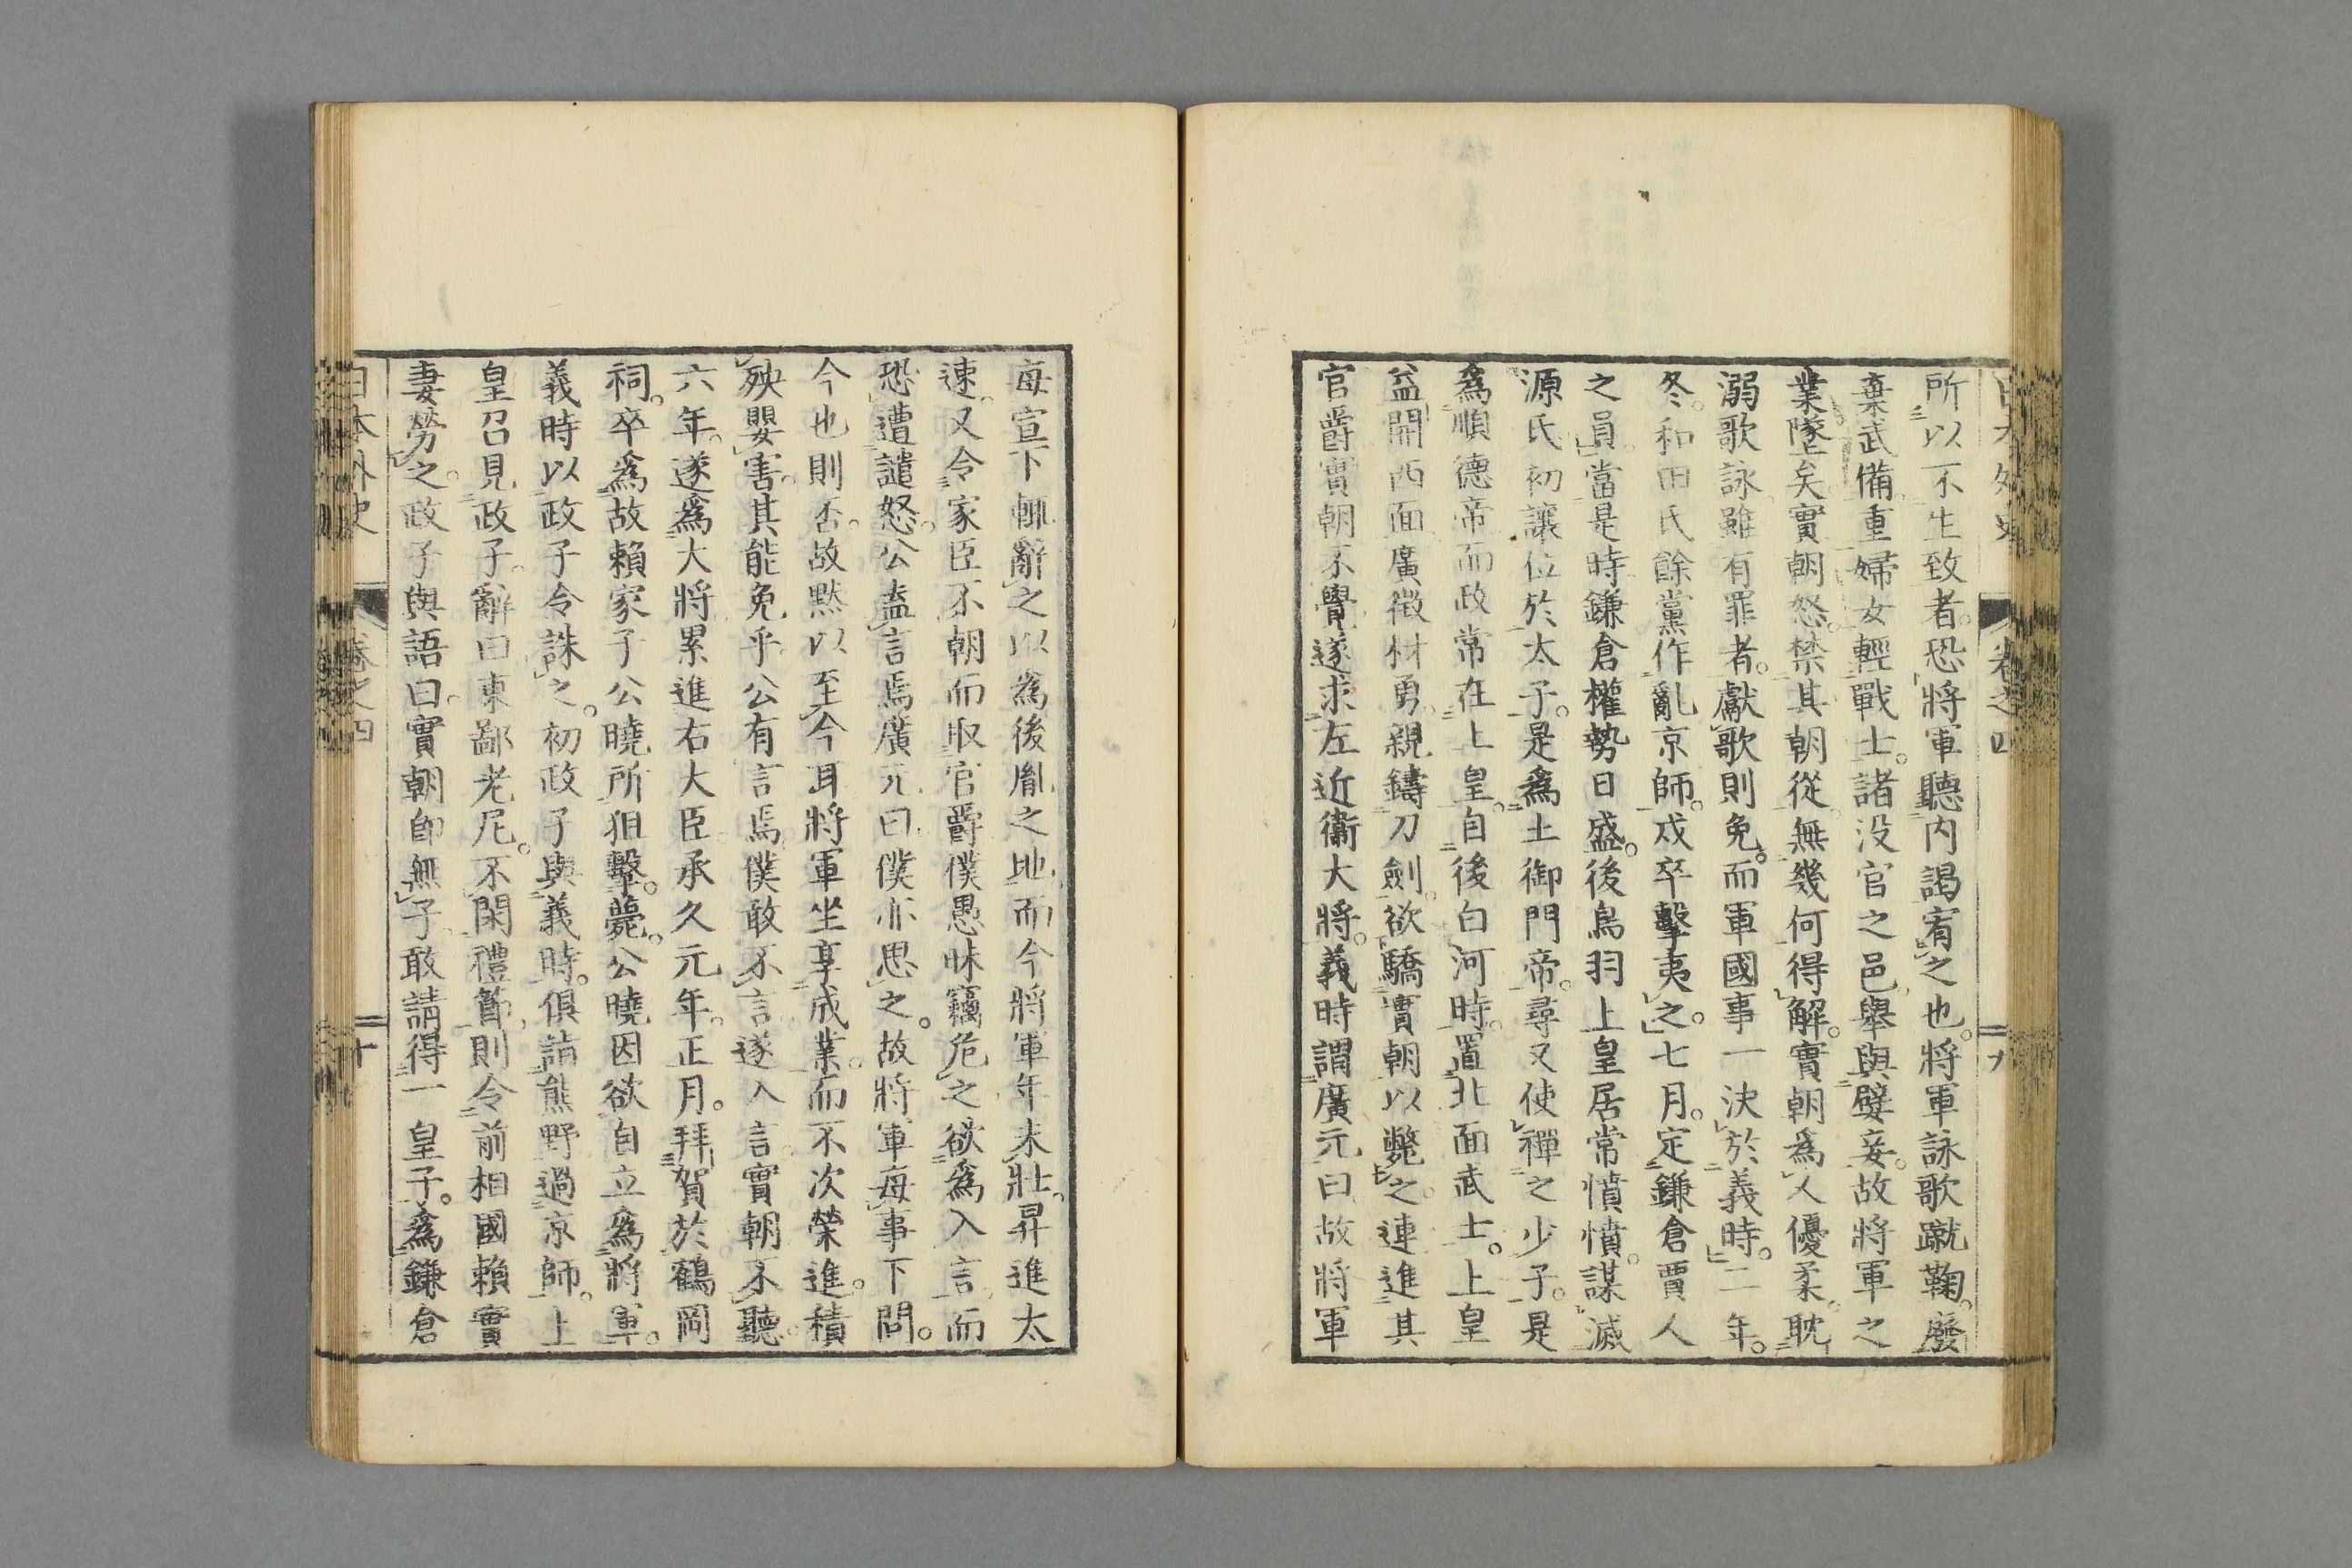 日本外史 卷之四 九
所以不生致者。恐將軍聽内謁宥之也。將軍詠歌蹴鞠。廢
棄武備。重婦女輕戰士。諸没官之邑。舉與嬖妾。故將軍之
業墜矣實朝怒。禁其朝從。無幾何得解。實朝爲人優柔。耽
溺歌詠。雖有罪者。獻歌則免。而軍國事一決於義時。二年。
冬。和田氏餘黨作亂京師。戍卒擊夷之。七月。定鎌倉賈人
之員。當是時鎌倉權勢日盛。後鳥羽上皇居常憤憤。謀滅
源氏初讓位於太子。是爲土御門帝。尋又使禪之少子。是
爲順德帝而政常在上皇。自後白河時。置北面武士。上皇
益開西面廣徴材勇。親鑄刀劍。欲驕實朝以斃之。連進其
官爵實朝不覺。遂求左近衞大將。義時謂廣元曰故將軍
每宣下輒辭之以爲後胤之地而今將軍年未壯。昇進太
速。又令家臣不朝而取官爵僕愚昧竊危之。欲爲入言而
恐遭譴怒。公盍言焉廣元曰。僕亦思之。故將軍每事下問。
今也則否。故默以至今耳將軍坐享成業。而不次榮進。積
殃嬰害。其能免乎。公有言焉。僕敢不言遂入言。實朝不聽。
六年。遂爲大將累進右大臣。承久元年。正月。拜賀於鶴岡
祠。卒爲故賴家子公曉所狙擊。薨。公曉因欲自立爲將軍。
義時以政子令誅之。初政子與義時。俱詣熊野過京師。上
皇召見政子。辭曰東鄙老尼。不閑禮節。則令前相國賴實
妻勞之。政子與語曰。實朝卽無子。敢請得一皇子。爲鎌倉
日本外史 卷之四 十